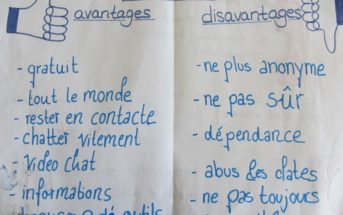 avantages
- gratuit
- tout le monde
- rester en contacte
- chatter vitement
- Video chat
- informations
disavantages
- ne plus anonyme
- ne pas sûr
- dépendance
- abus des dates
- ne pas toujours